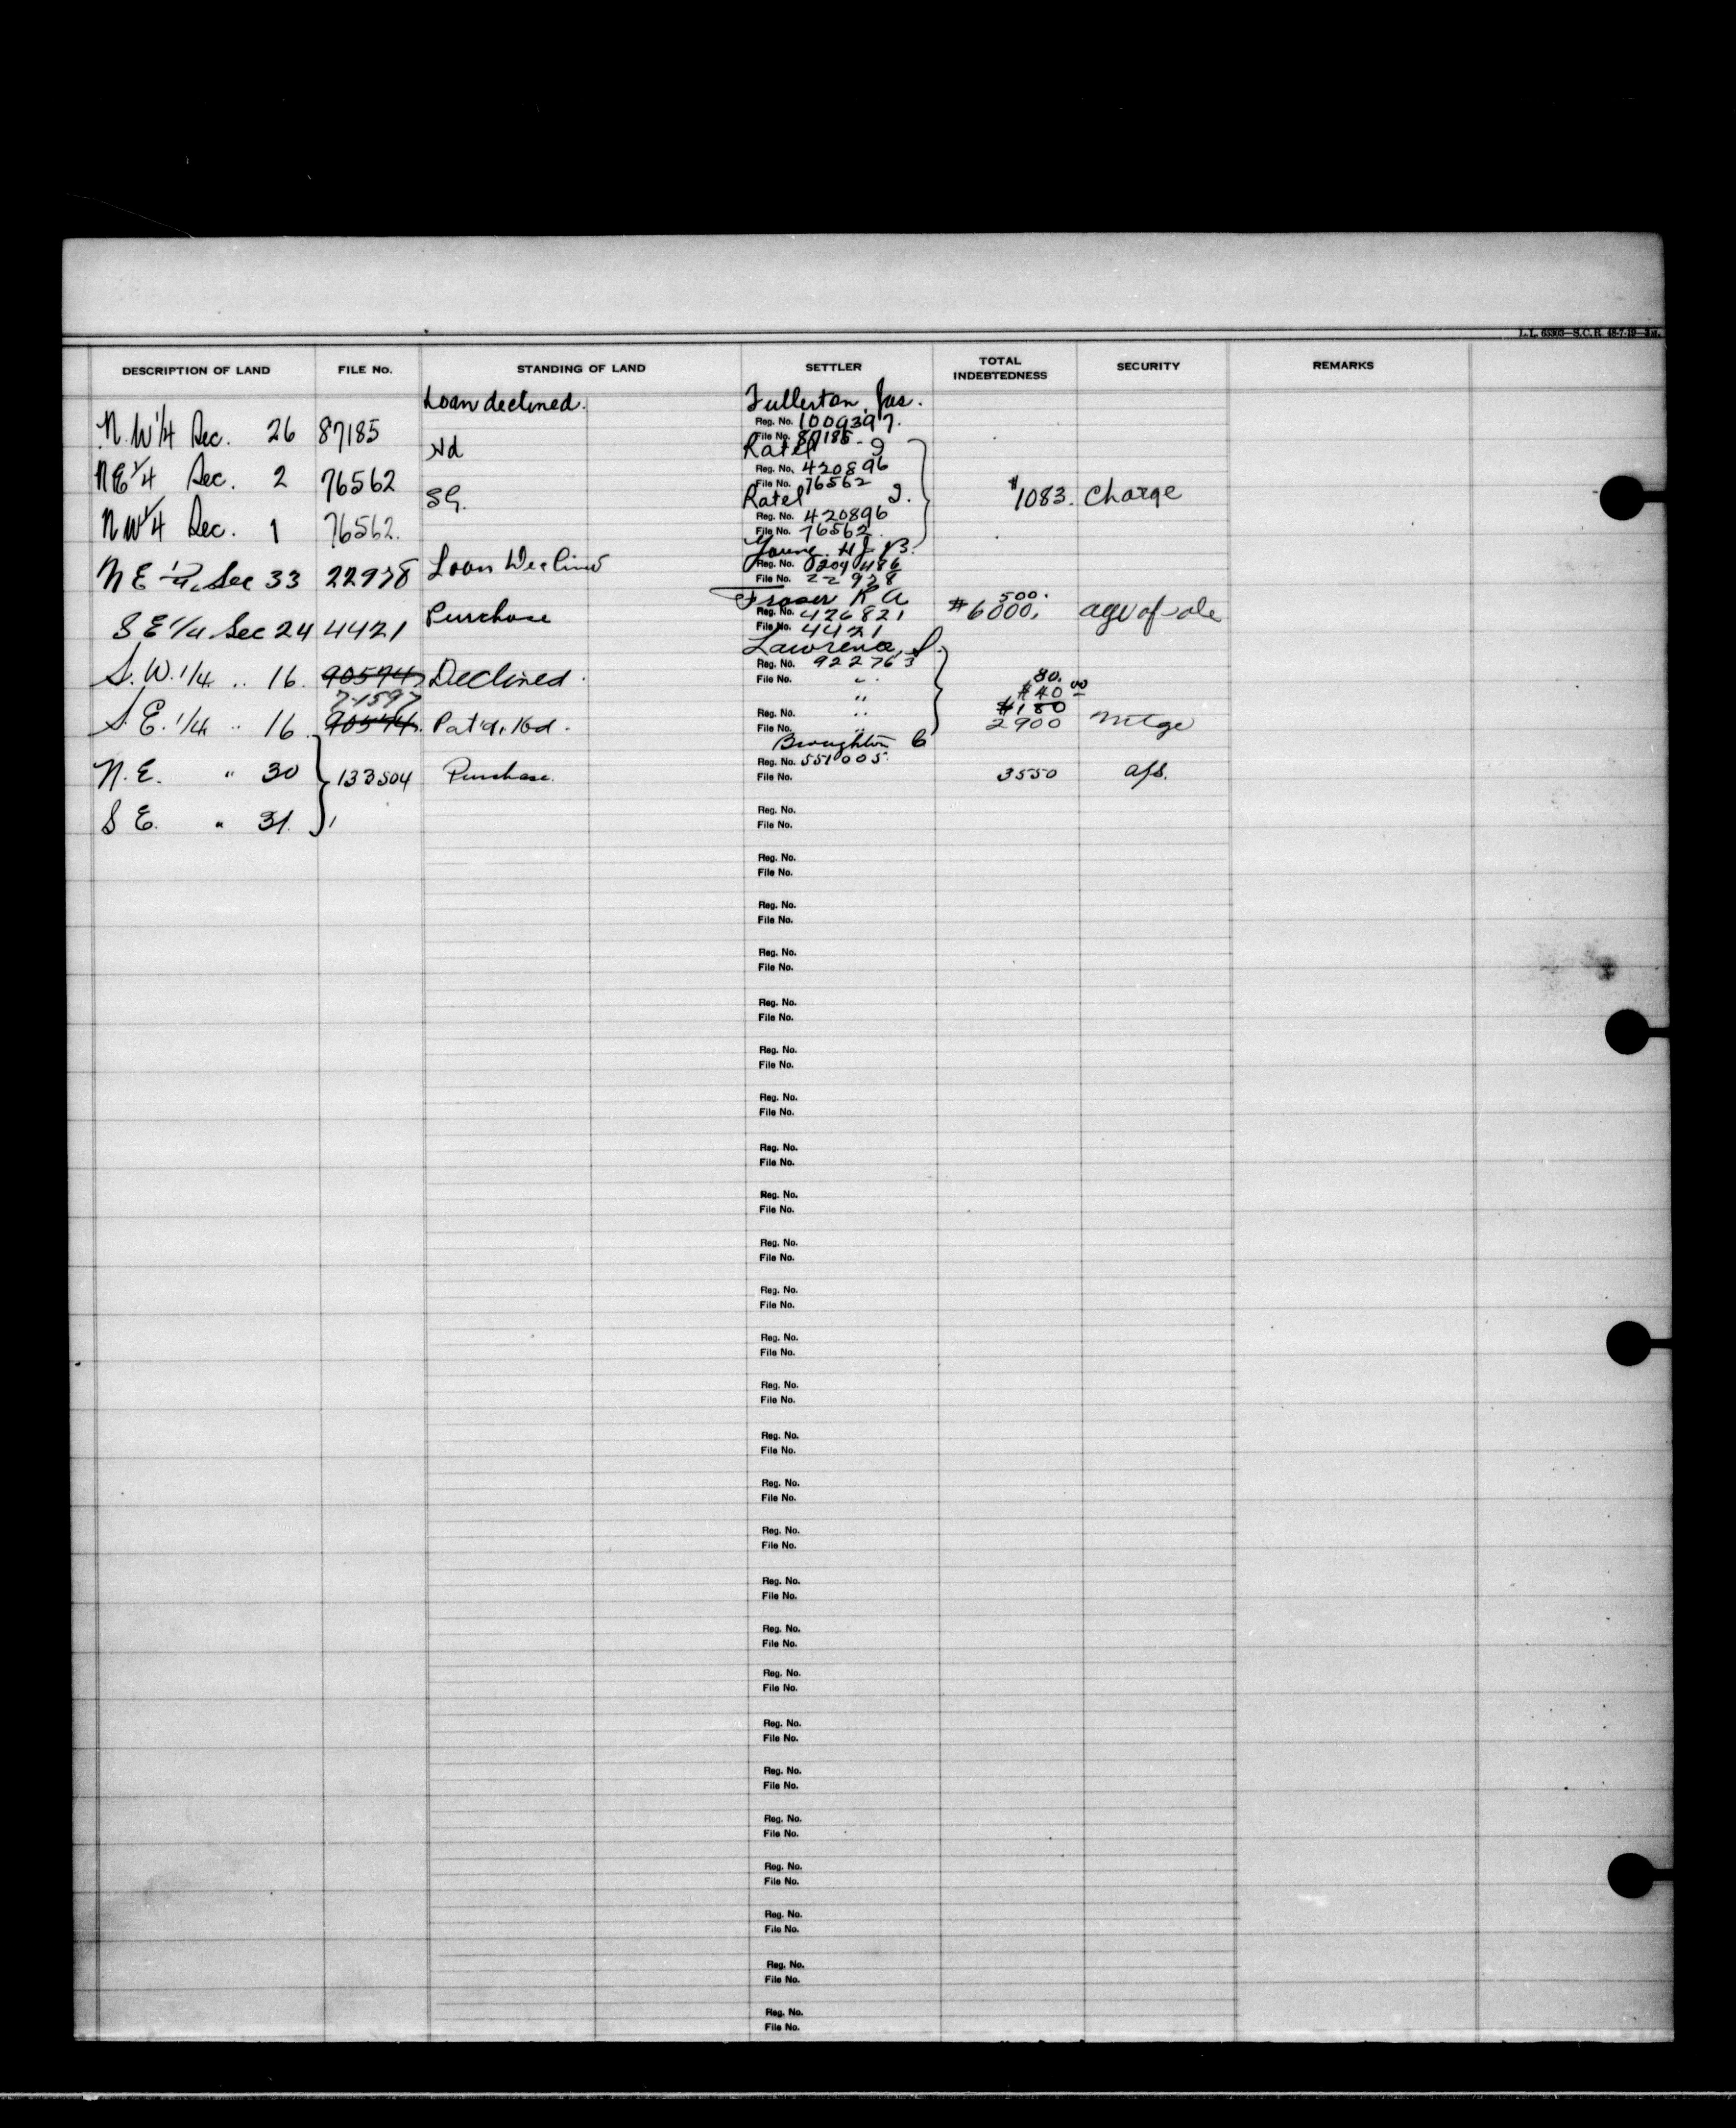 L.L. 65303—S.C.R. 48-7-19—3M.
DESCRIPTION OF LAND FILE No. STANDING OF LAND SETTLER TOTAL INDEBTEDNESS SECURITY REMARKS
Loan declined. Fullerton, Jas.
N.W 1/4 Sec. 26 87185 Reg. No. 1009397.
File No. 87185
Ratel J
NE 1/4 Sec. 2 76562 Reg. No. 420896
File No. 76562
SG. Ratel J. $1083. Charge
NW 1/4 Sec. 1 76562. Reg. No. 420896
File No. 76562.
Loan Declined Young H J B.
N E 1/4 Sec 33 22978 Reg. No.
File No. 22978
Purchase Fraser R A 500.
S E 1/4 Sec 24 4421 Reg. No. 426821 $6000. agr of sale
File No. 4421
Lawrence, S.
S.W. 1/4 .. 16. 90594 Declined. Reg. No. 922763
File No. " 80.
71597 " $40 00
Reg. No. " $180
S.E. 1/4 " 16 90594. Pat'd. Hd. File No. " 2900 mtge
Broughton C
Reg. No. 551005.
N.E. " 30 133504 Purchase. File No. 3550 a/s.
Reg. No.
S E. " 31. File No.
Reg. No.
File No.
Reg. No.
File No.
Reg. No.
File No.
Reg. No.
File No.
Reg. No.
File No.
Reg. No.
File No.
Reg. No.
File No.
Reg. No.
File No.
Reg. No.
File No.
Reg. No.
File No.
Reg. No.
File No.
Reg. No.
File No.
Reg. No.
File No.
Reg. No.
File No.
Reg. No.
File No.
Reg. No.
File No.
Reg. No.
File No.
Reg. No.
File No.
Reg. No.
File No.
Reg. No.
File No.
Reg. No.
File No.
Reg. No.
File No.
Reg. No.
File No.
Reg. No.
File No.
Reg. No.
File No.